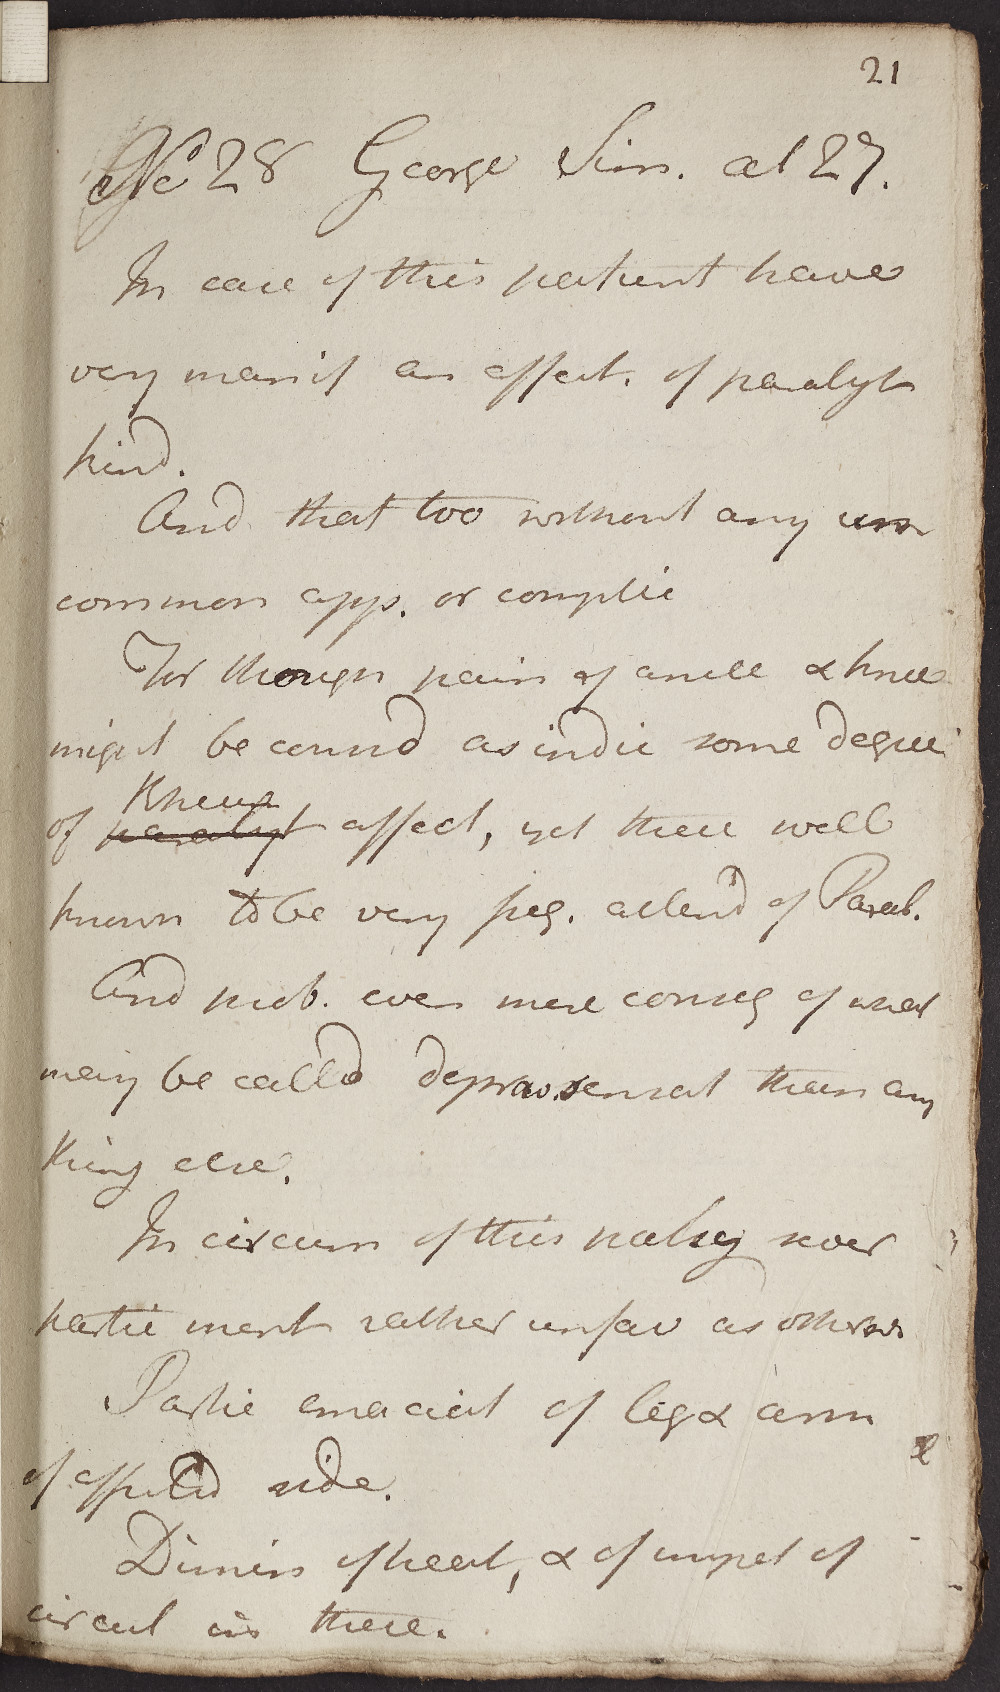 21
No 28 George Sim. at 27.
In case of this patient have
very manif an affect. of paralyt
kind.
And that too without any un
common app. or complic
For though pain of ancle & knee
might be consid as indic some degree
of Rheum paralyt affect, yet these well
known to be very freq. attend of Paral.
And prob. even mere conseq of what
may be calld deprav. sensat than any
thing else.
In circum of this palsy sever
partic ment rather unfav as others
Partic emaciat of leg & arm
of affectd side.
Dimin of heat, & of impet of
circul in these.